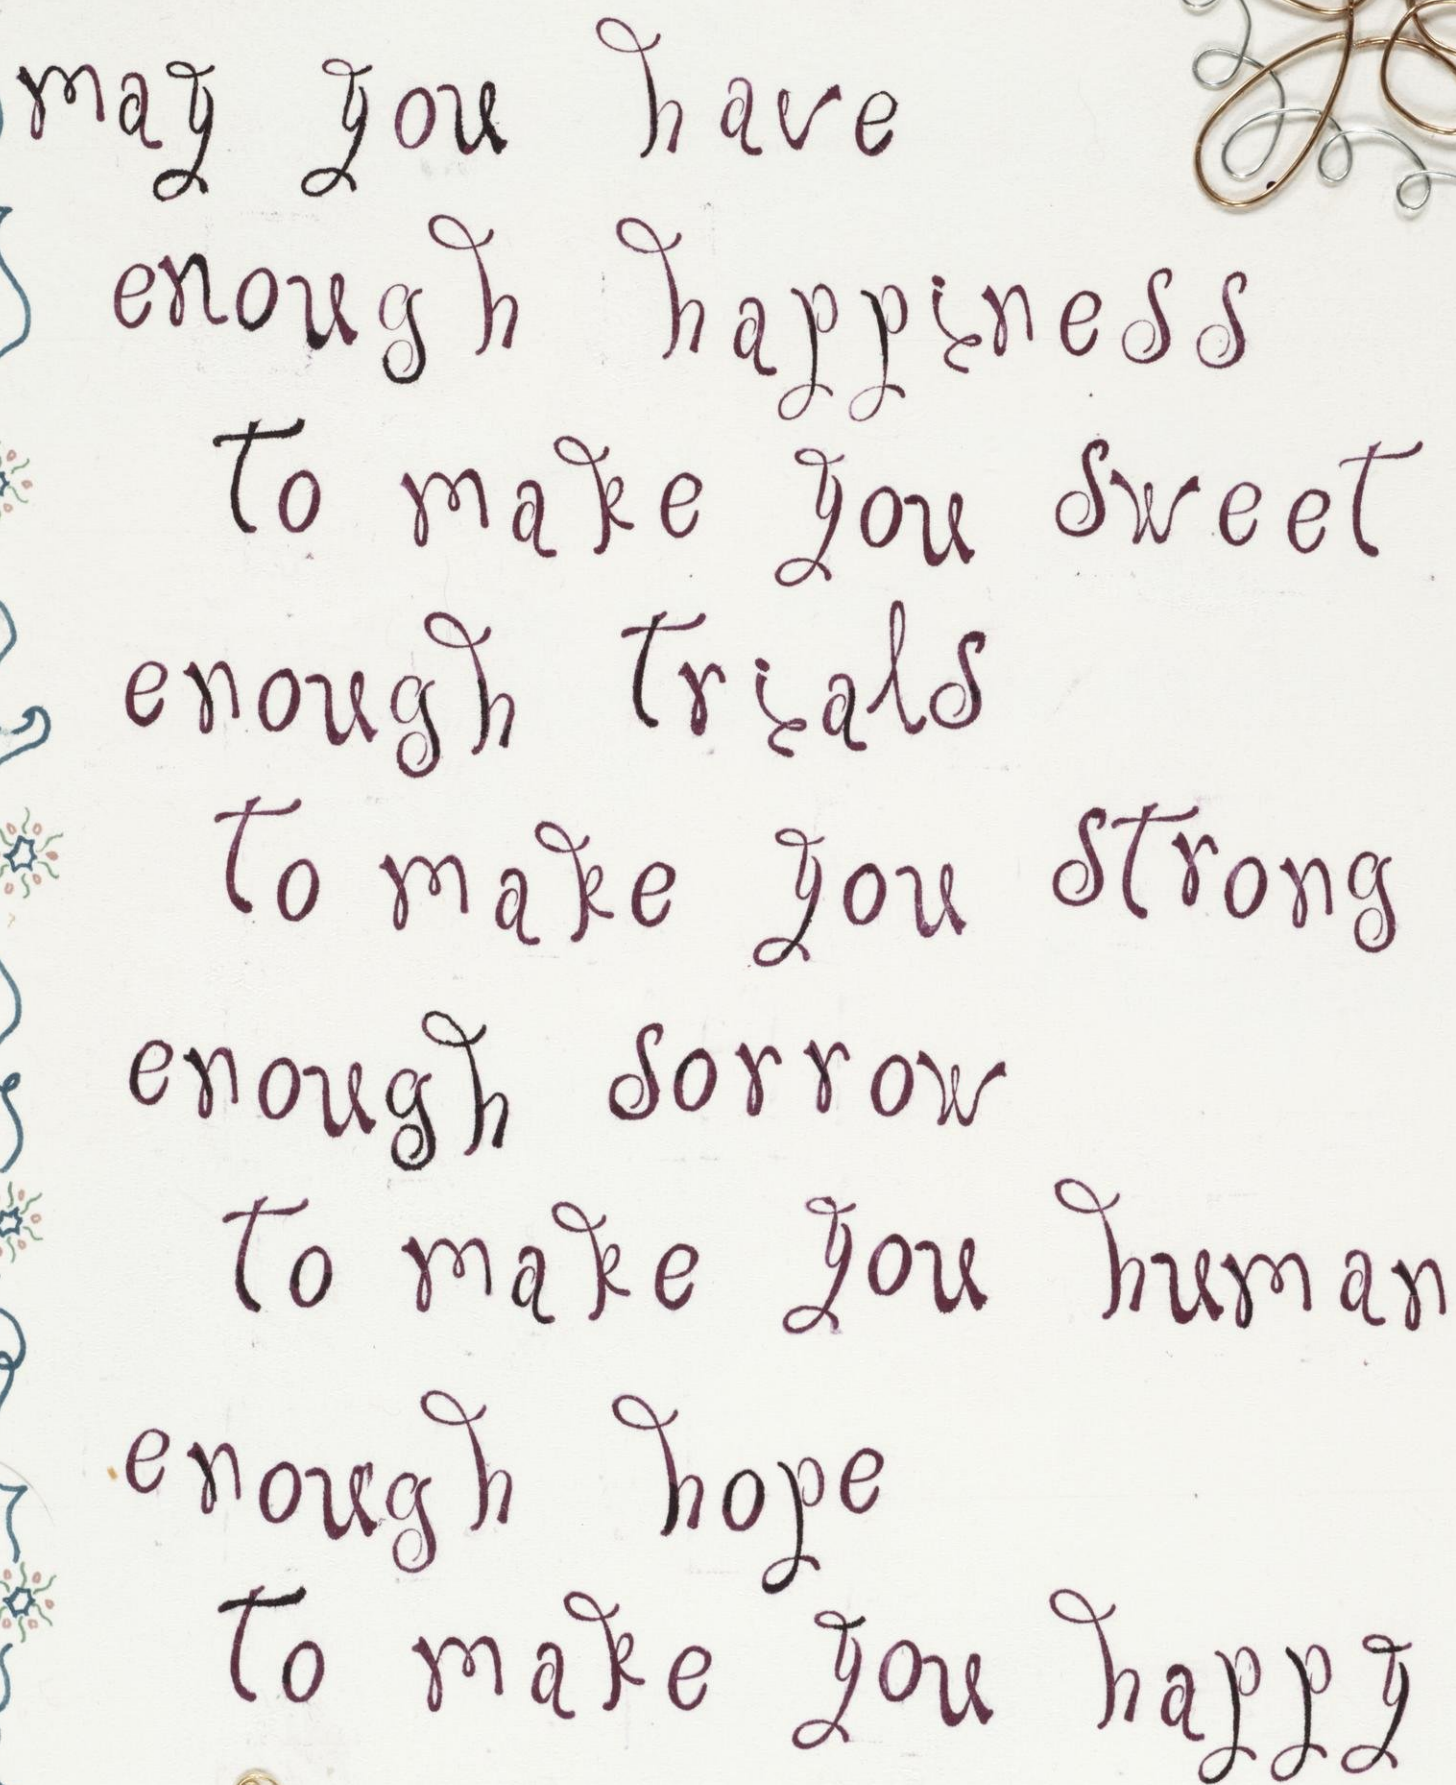 may you have
enough happiness
to make you sweet
enough trials
to make you strong
enough sorrow
to make you human
enough hope
to make you happy